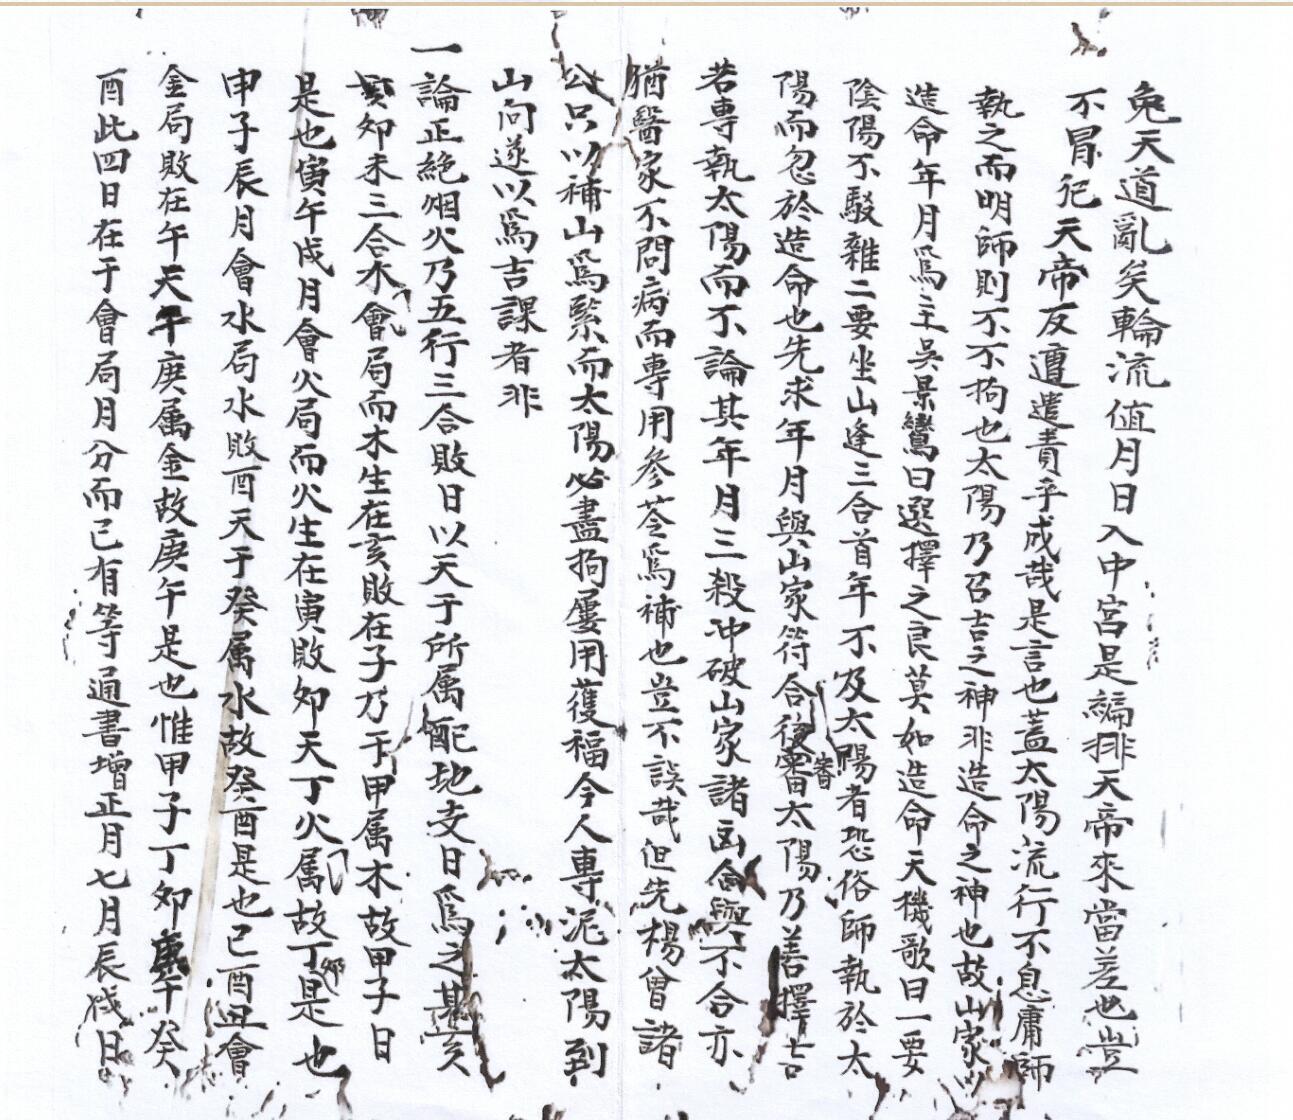 兔天道亂矣輪流値月日入中宮是編排天帝來當差也豈
不冐犯天帝反遭遣責乎成哉是言也蓋太陽流行不息庸師
執之而明師則不不拘也太陽乃召吉之神非造命之神也故山家以
造命年月爲主吳景鸞曰選擇之良莫如造命天機歌曰一要
陰陽不駁雜二要坐山逢三合首年不及太陽者恐俗師執於太
陽而忽於造命也先求年月與山家符合後審太陽乃善擇吉
若専執太陽而不論其年月三殺沖破山家諸凶合與不合亦
猶醫家不問病而専用參苓爲補也豈不誤哉但先楊曾諸
公只以補山爲緊而太陽必盡拘屢用獲福今人専泥太陽到
山向遂以爲吉課者非
一論正絶烟火乃五行三合敗日以天于所属配地支日爲之甚亥
亥卯未三合木會局而木生在亥敗在子乃干甲属木故甲子日
是也寅午戌月會火局而火生在寅敗卯天丁火属故丁卯是也
申子辰月會水局水敗酉天于癸属水故癸酉是也巳酉丑會
金局敗在午天干庚属金故庚午是也惟甲子丁卯庚午癸
酉此四日在于會局月分而已有等通書增正月七月辰戌日